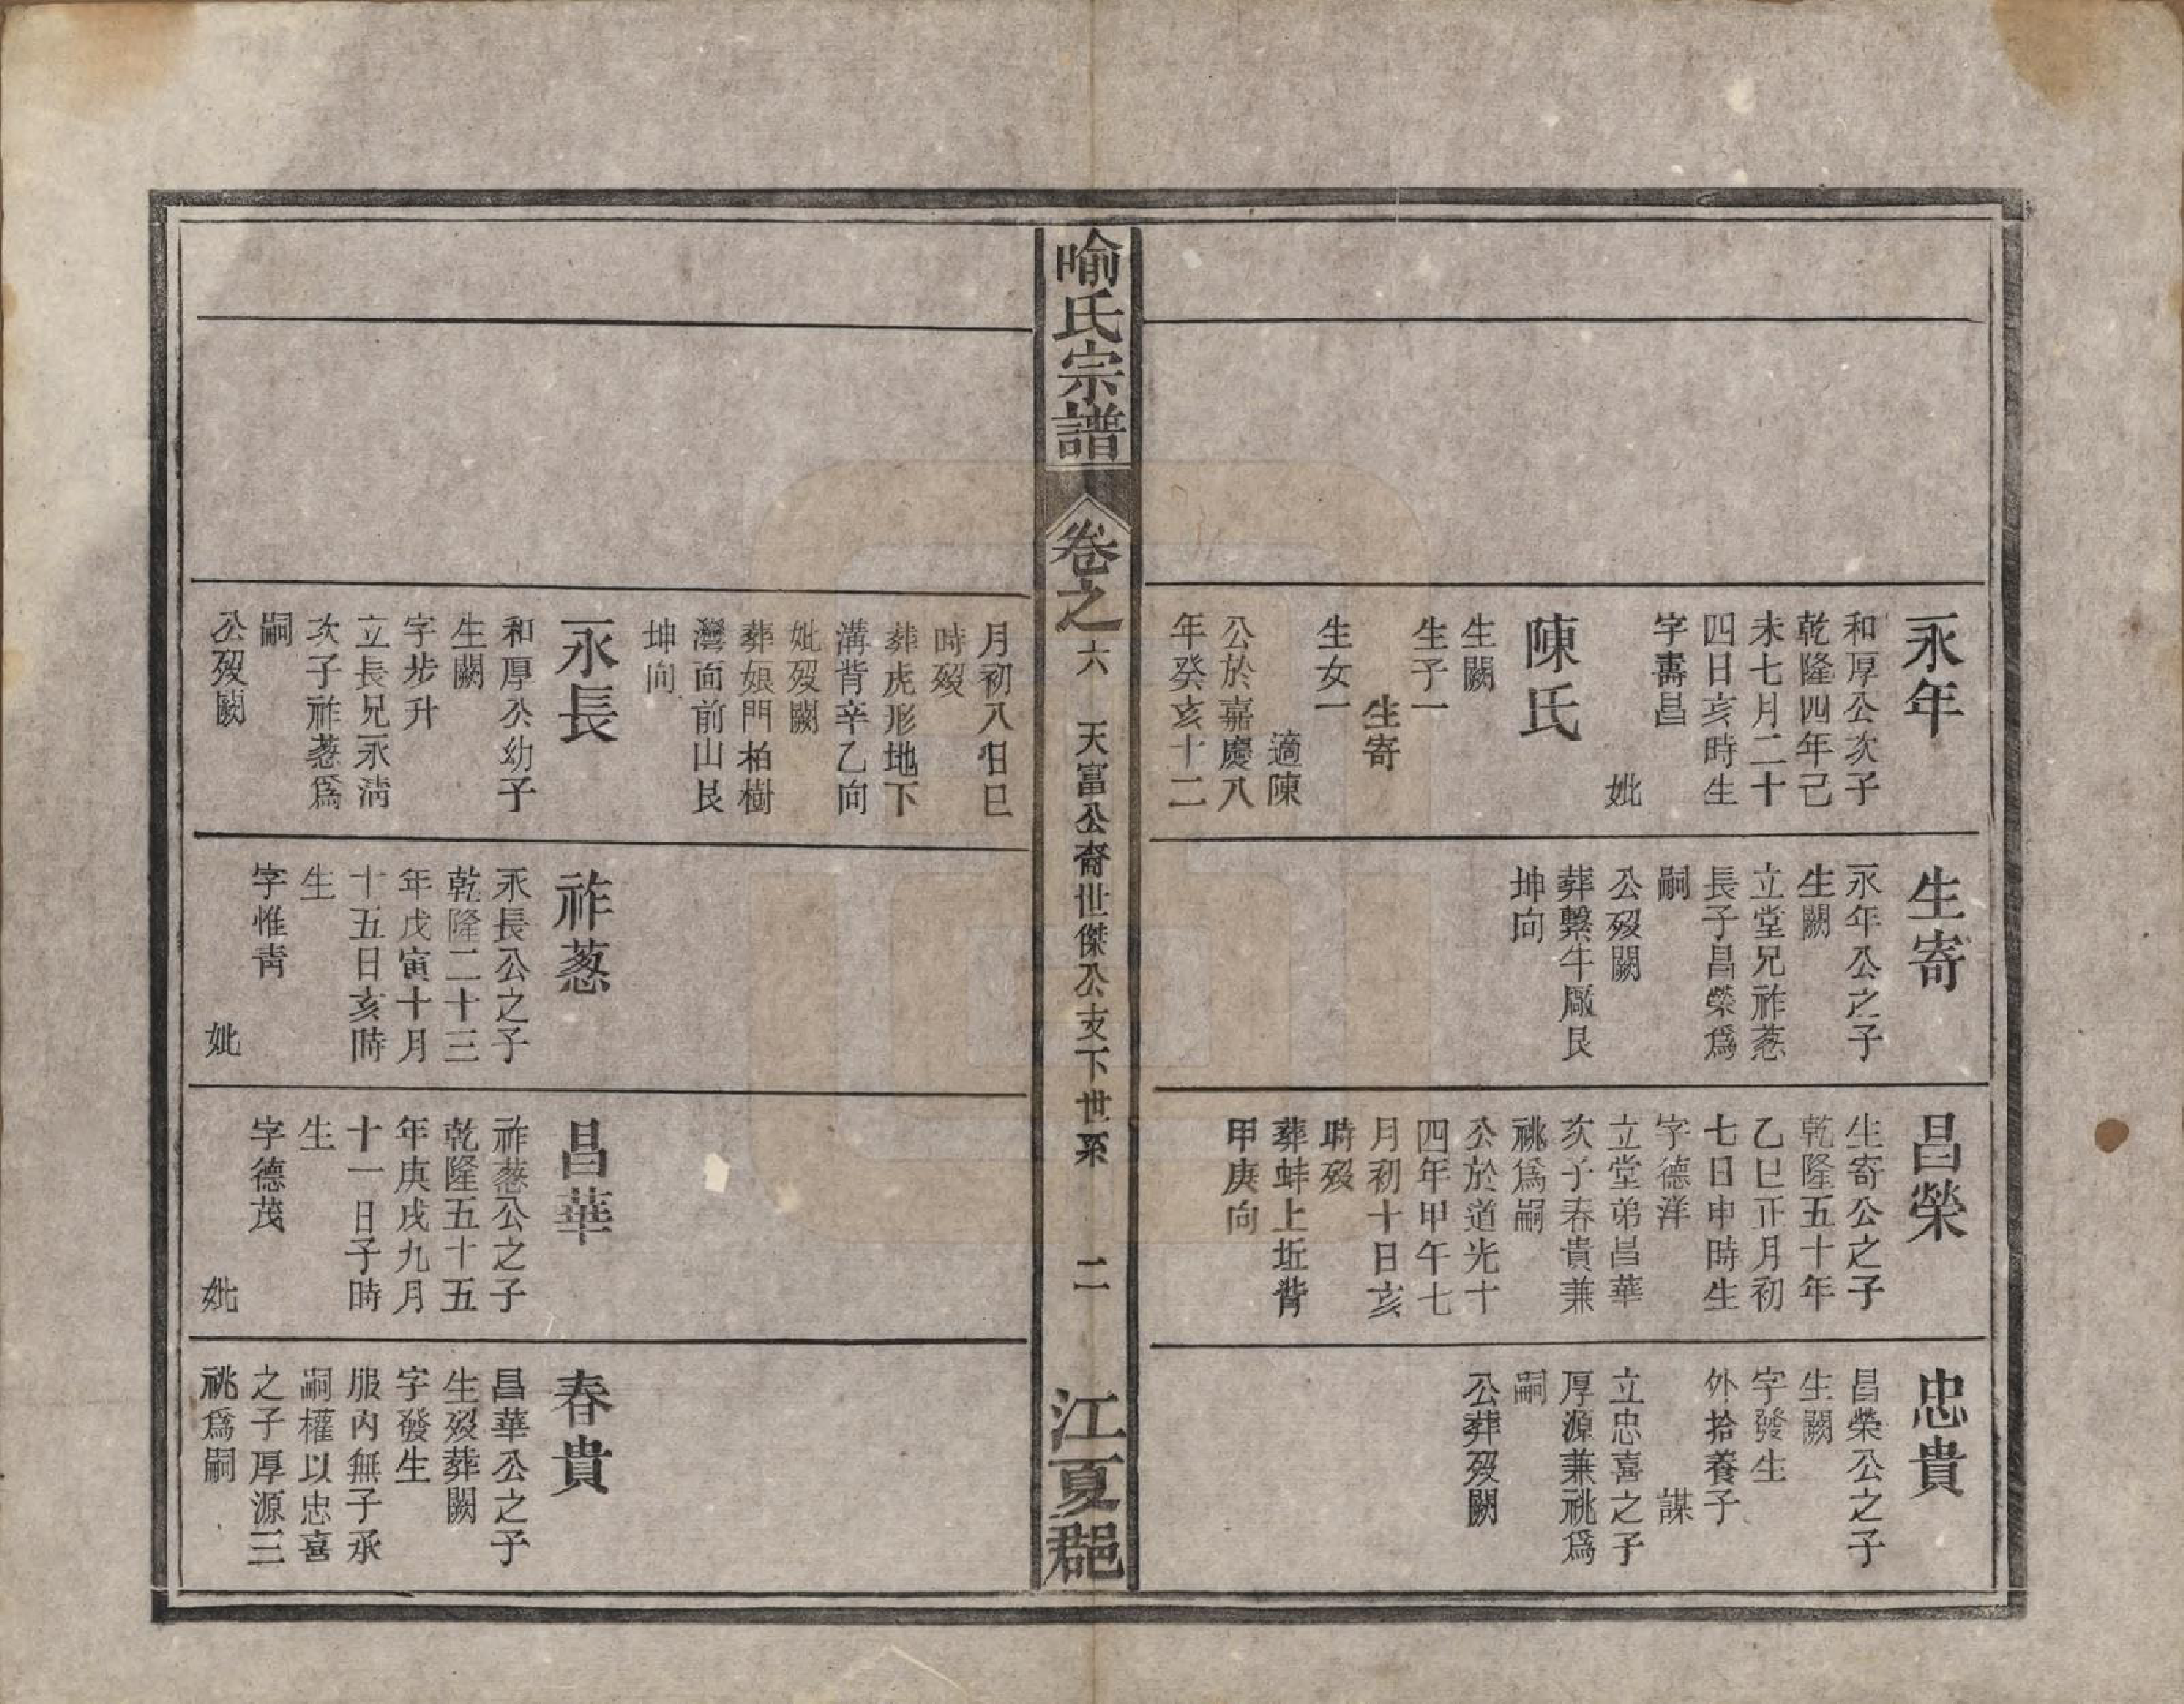 永年
和厚公次子
乾隆四年己
未七月二十
四日亥時生
字壽昌
妣
陳氏
生闕
生子一
生寄
生女一
適陳
公於嘉慶八
年癸亥十二
生寄
永年公之子
生闕
立堂兄祚蔥
長子昌榮爲
嗣
公歿闕
葬繫牛厰艮
坤向
昌榮
生寄公之子
乾隆五十年
乙巳正月初
七日申時生
字德洋
立堂弟昌華
次子春貴兼
祧爲嗣
公於道光十
四年甲午七
月初十日亥
時歿
葬蚌上坵背
甲庚向
忠貴
昌榮公之子
生闕
字發生
外拾養子
謀
立忠喜之子
厚源兼祧爲
嗣
公葬歿闕
喻氏宗譜
卷之六
天富公裔世傑公支下世系
二
江夏郡
月初八日巳
時歿
葬虎形地下
溝背辛乙向
妣歿闕
葬娘門柏樹
灣面前山艮
坤向
永長
和厚公幼子
生闕
字步升
立長兄永淸
次子祚蔥爲
嗣
公歿闕
祚蔥
永長公之子
乾隆二十三
年戊寅十月
十五日亥時
生
字惟靑
妣
昌華
祚蔥公之子
乾隆五十五
年庚戌九月
十一日子時
生
字德茂
妣
春貴
昌華公之子
生歿葬闕
字發生
服內無子承
嗣權以忠喜
之子厚源三
祧爲嗣